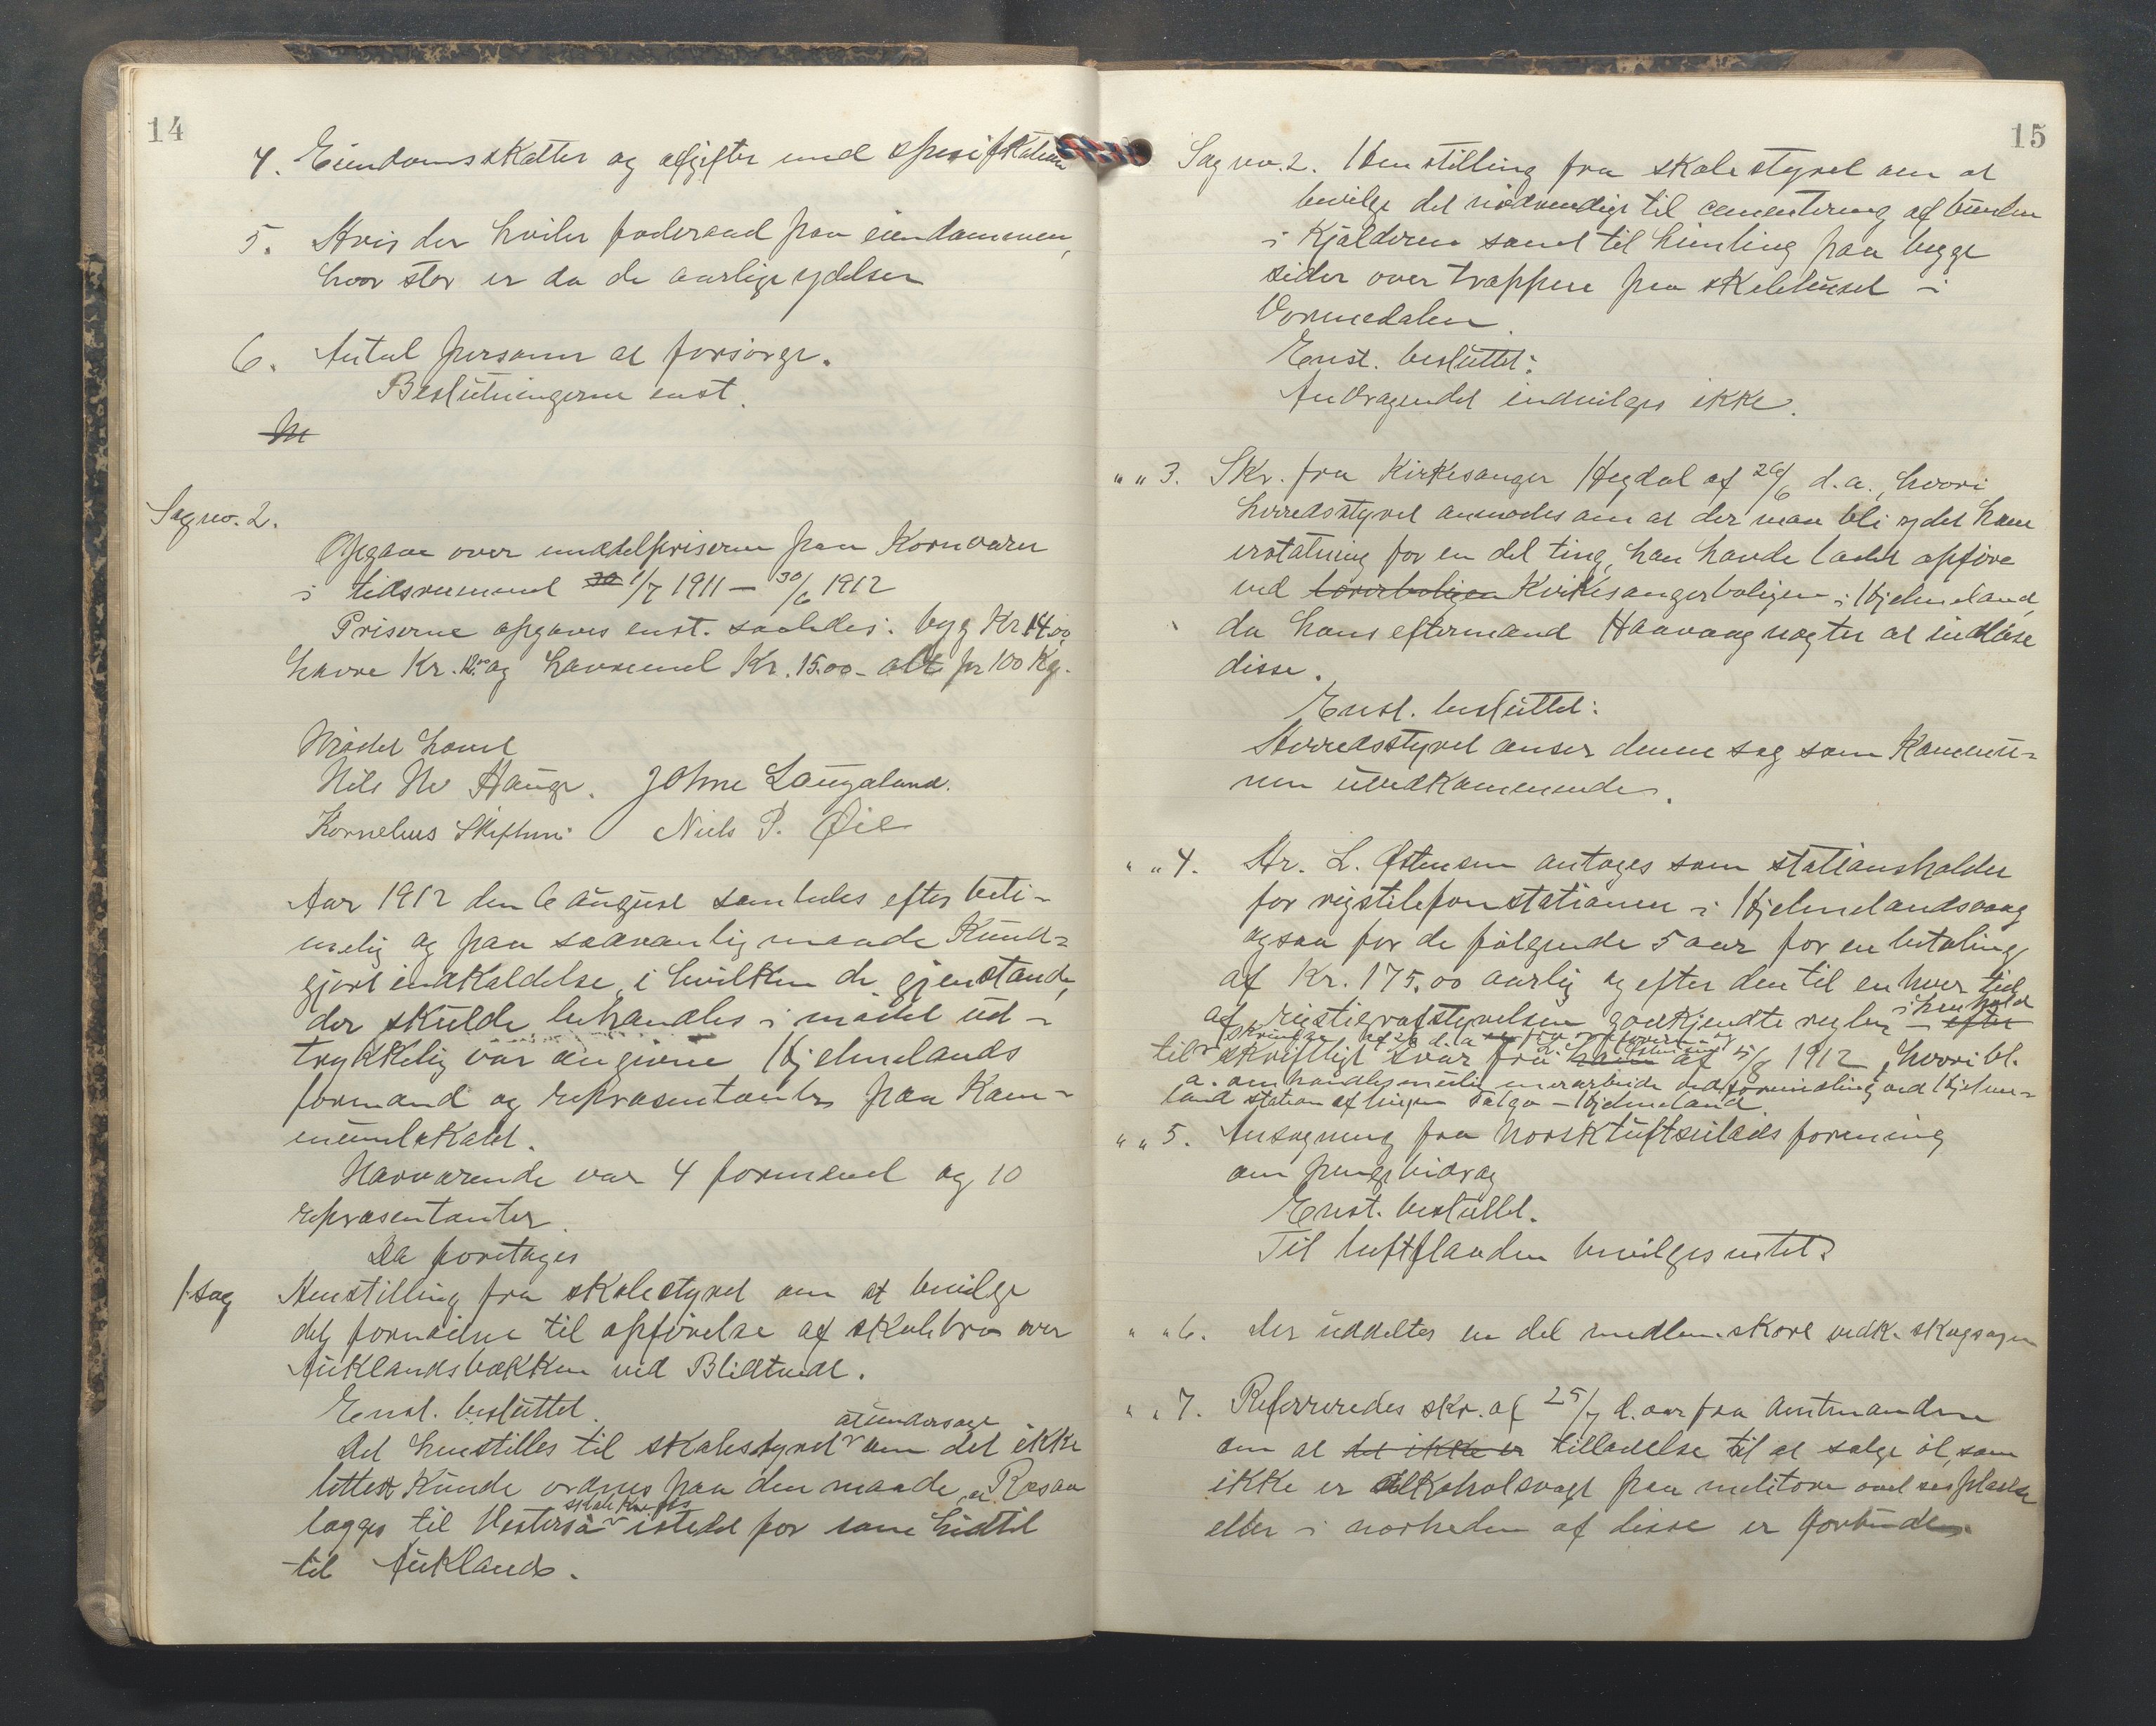 14
4. Eiendomsskatter og afgifter med spesifikation
5. Hvis der hviler foderaad paa eiendommen,
hvor stor er da de aarlige ydelser
6. Antal personer at forsørge.
Beslutningerne enst.
Sag no. 2.
Opgave over middelpriserne paa Kornvarer
i tidsrummet 30 1/7 1911 – 30/6 1912
Priserne opgaves enst. saaledes: byg Kr 14.00
havre Kr. 12.00 og havremel Kr. 15.00 – alt pr 100 Kg.
Mødet hævet
Nils Hauge. Johne Laugaland.
Kornelius Skiftun Niels P. Øie
Aar 1912 den 6 august samledes efter beti-
melig og paa sædvanlig maade Kund-
gjort indkaldelse, i hvilken de gjenstande,
der skulde behandles i mødet ud-
trykkelig var angivne Hjelmelands
formænd og repræsentanter paa Kom-
munelokalet.
Nærværende var 4 formænd og 10
repræsentanter.
Da foretages
1. sag Henstilling fra skolestyret om at bevilge
det fornødne til opførelse af skolebro over
Auklandsbækken ved
Enst. besluttet.
at undersøge
Det henstilles til skolestyret om det ikke
lettest Kunde ordnes paa den maade, at Rosaa
skolekreds
lægges til Vesteraa istedet for som hidtil
til Auklands.
15
Sag no. 2. Henstilling fra skolestyret om at
bevilge det nødvendige til cementering af bunden
i Kjælderen samt til himling paa begge
sider over trappen paa skolehuset i
Vormedalen.
Enst. besluttet:
Andragendet indvilges ikke.
" " 3. Skr. fra Kirkesanger Hegdal af 26/6 d.a., hvori
herredsstyret anmodes om at der maa bli ydet ham
erstatning for en del ting, han havde ladet opføre
ved lærerboligen Kirkesangerboligen i Hjelmeland,
da hans eftermand Haavaag nægter at indløse
disse.
Enst. besluttet:
Herredsstyret anser denne sag som Kommu-
nen uvedkommende.
" " 4. Hr. L. Østensen antages som stationsholder
for rigstelefonstationen i Hjelmelandsvaag
ogsaa for de følgende 5 aar for en betaling
af Kr. 175.00 aarlig og efter den til enhver tid
i henhold
af rigstelegrafstyrelsen godkjendte regler – efter
til skriftligt svar fra ham af 5/8 1912, hvori bl.
a. omhandles merarbeide ved formidling ved Hjelme-
land station af linjen Talgø – Hjelmeland.
" " 5. Ansøgning fra Norsk luftseiladsforening
om pengebidrag
Enst. besluttet.
Til luftflaaden bevilges intet.
" " 6. Der uddeltes en del medlemskort vedk. skogsagen
" " 7. Refereredes skr. af 25/7 d. aar fra amtmanden
om at det ikke er tilladelse til at sælge øl, som
ikke er alkoholsvagt paa militære øvelsespladse
eller i nærheden af disse er forbuden.